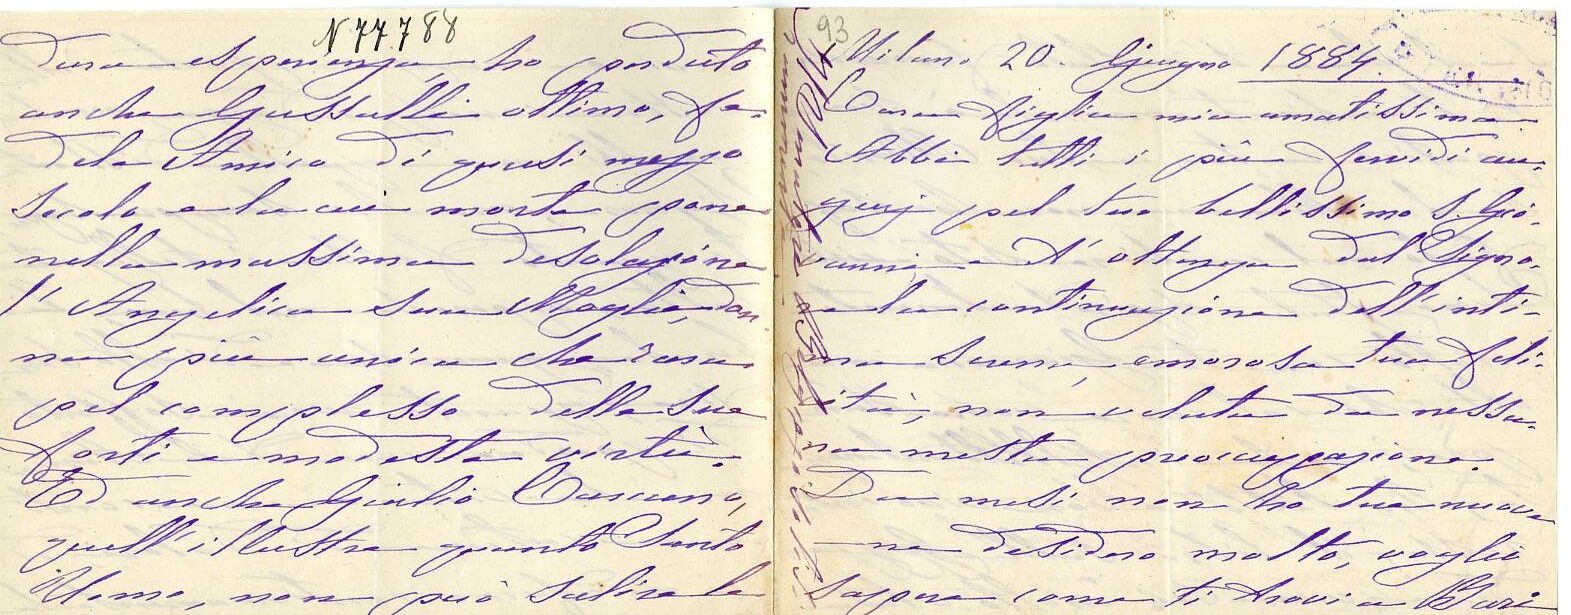 N 77788
dura esperienza, ho perduto
anche Gussalli ottimo, fe-
dele Amico di quasi mezzo
secolo e la cui morte pone
nella massima desolazione
l'Angelica sua Moglie, don-
na più unica che rara
pel complesso delle sue
forti e modeste virtù.
Ed anche Giulio Carcano,
quell'illustre quanto Santo
Uomo, non può salire le
93
Milano 20. Giugno 1884.
Cara figlia mia amatissima
Abbi tutti i più fervidi au-
gurj pel tuo bellissimo S. Gio-
vanni e t'ottenga dal Signo-
re la continuazione dell'inti-
ma serena, amorosa tua feli-
cità, non velata da nessu-
na mesta preoccupazione.
Da mesi non ho tue nuove
e ne desidero molto, voglio
sapere come ti trovi a Bari